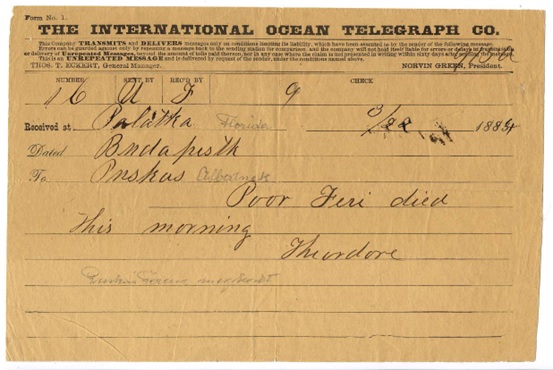 Form No. 1.
THE INTERNATIONAL OCEAN TELEGRAPH CO.
This Company TRANSMITS and DELIVERS messages only on conditions limiting its liability, which have been assented to by the sender of the following message.
Errors can be guarded against only by repeating a message back to the sending station for comparison, and the company will not hold itself liable for errors or delays in
of Unrepeated Messages, beyond the amount of tolls paid thereon, nor in any case where the claim is not presented in writing within sixty days after sending the message.
This is an UNREPEATED MESSAGE and is delivered by request of the sender, under the conditions named above.
THOS. T. ECKERT, General Manager. NORVIN GREEN, President.
NUMBER SENT BY REC'D BY CHECK
16 U F 9
Received at Palatka Florida 3/22 1884
Dated Budapesth
To Puskas
Poor Feri died
this morning
Theordore